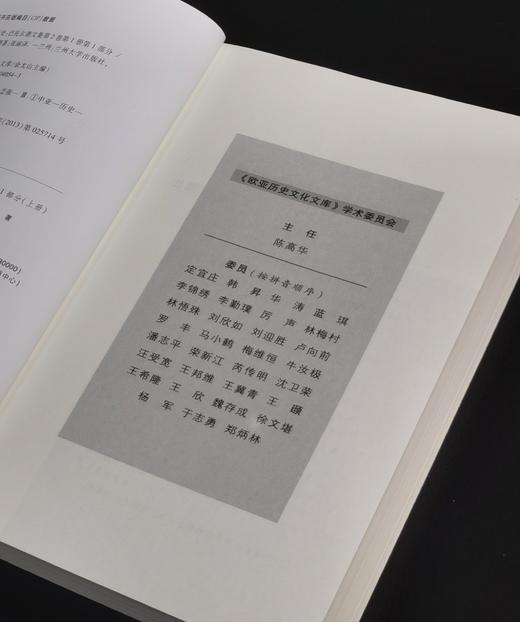 书在版编目(CIP)数据
史:巴托尔德文集第2卷第1册第1部分/
著;张丽译. —兰州:兰州大学出版社,
文库/余太山主编)
04084-3
②张… Ⅲ.①中亚—历史—
(2013)第025714号
1部分(上册)
著
30000)
《欧亚历史文化文库》学术委员会
主 任
陈高华
委员(按拼音顺序)
定宜庄 韩 昇 华 涛 蓝 琪
李锦绣 李勤璞 厉 声 林梅村
林悟殊 刘欣如 刘迎胜 卢向前
罗 丰 马小鹤 梅维恒 牛汝极
潘志平 荣新江 芮传明 沈卫荣
汪受宽 王邦维 王冀青 王 颋
王希隆 王 欣 魏存成 徐文堪
杨 军 于志勇 郑炳林